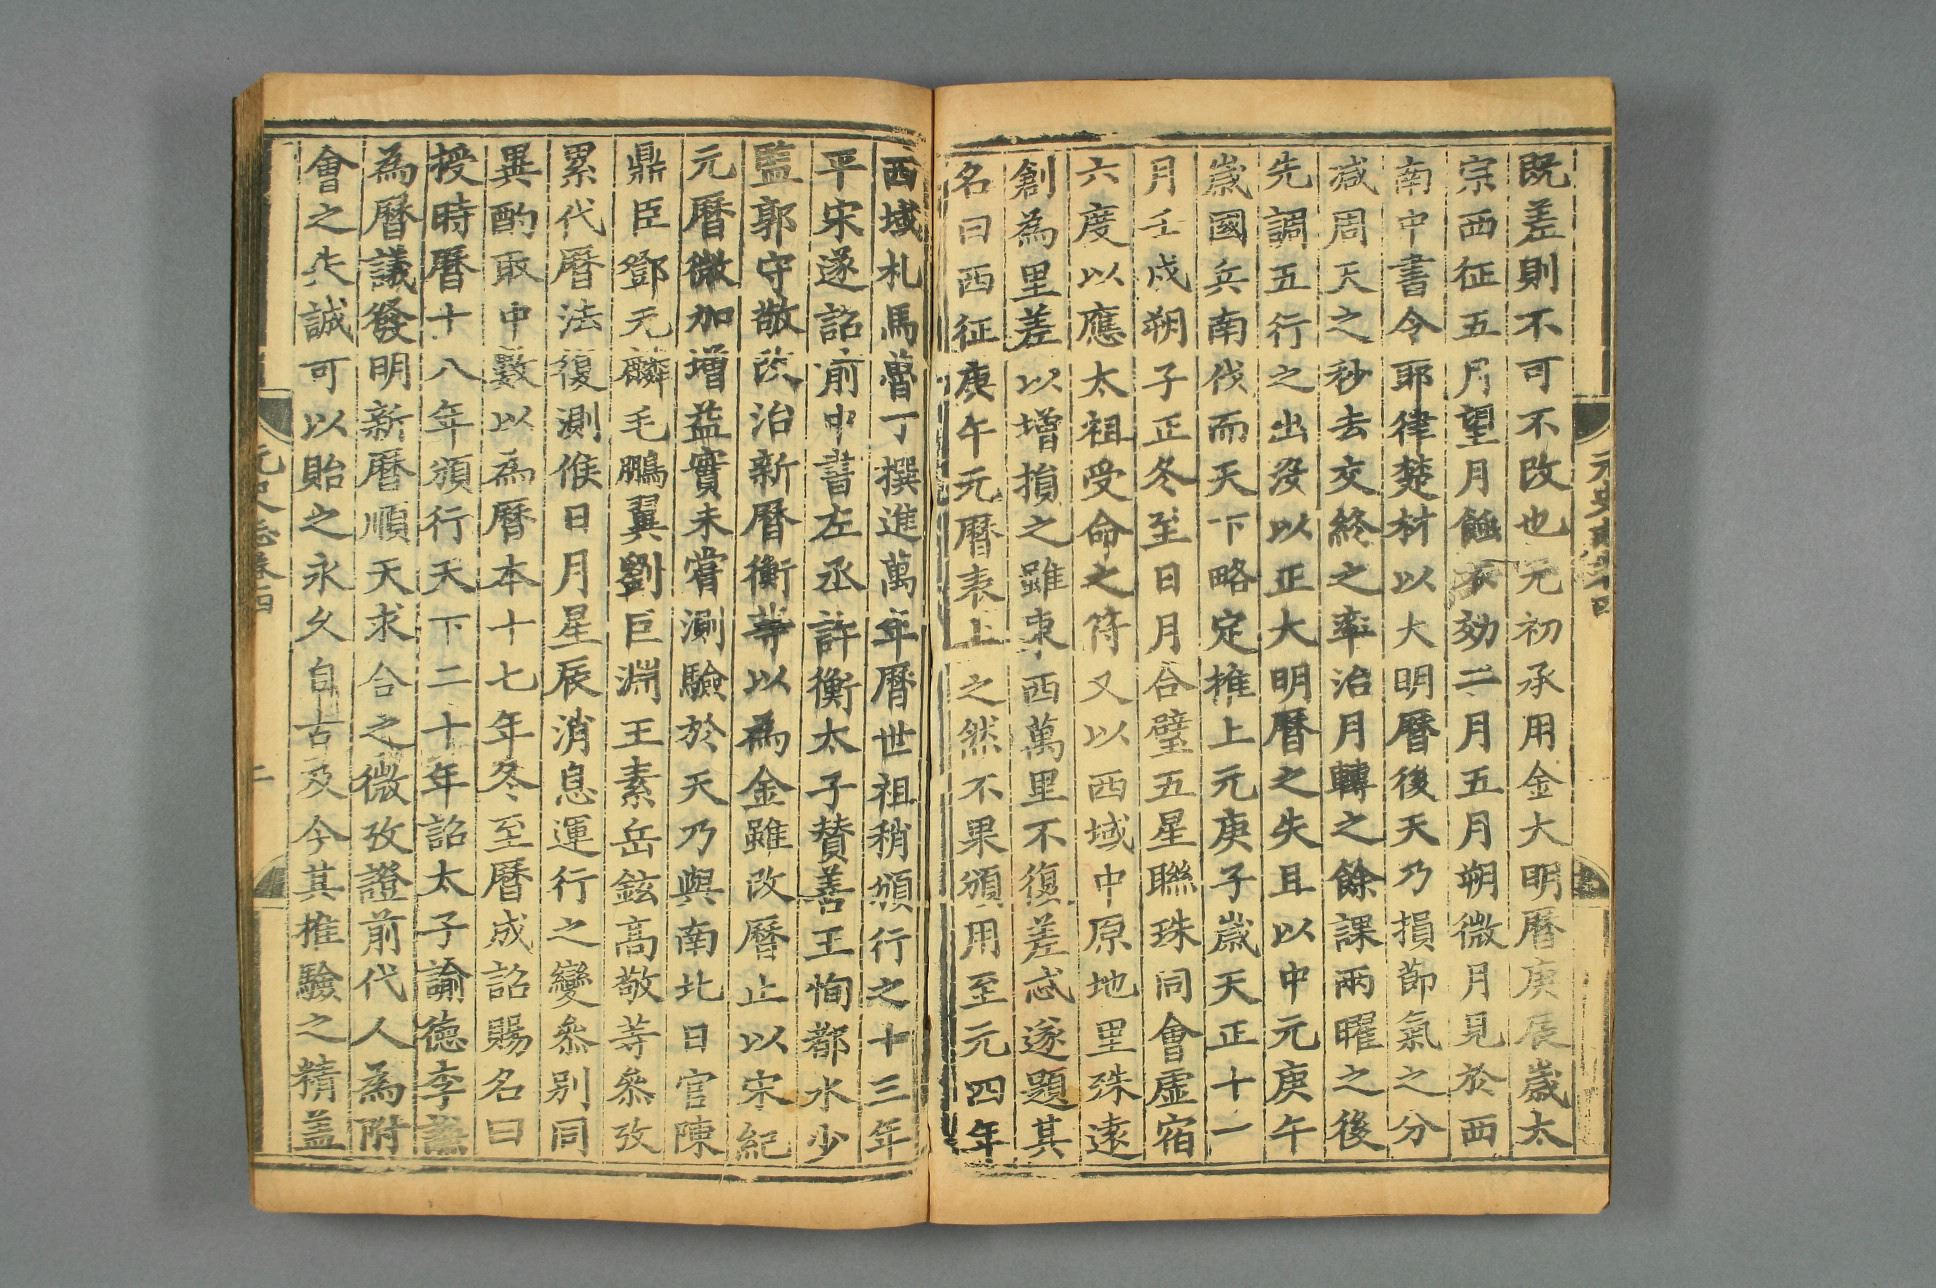 既差則不可不改也元初承用金大明曆庚辰歲太
宗西征五月望月蝕不効二月五月朔微月見於西
南中書令耶律楚材以大明曆後天乃損節氣之分
减周天之秒去交終之率治月轉之餘課兩曜之後
先調五行之出沒以正大明曆之失且以中元庚午
歲國兵南伐而天下略定推上元庚子歲天正十一
月壬戌朔子正冬至日月合璧五星聯珠同會虛宿
六度以應太祖受命之符又以西域中原地里殊遠
創為里差以增損之雖東西萬里不復差忒遂題其
名曰西征庚午元曆表上之然不果頒用至元四年
西域札馬魯丁撰進萬年曆世祖稍頒行之十三年
平宋遂詔前中書左丞許衡太子贊善王恂都水少
監郭守敬改治新曆衡等以為金雖改曆止以宋紀
元曆微加增益實未嘗測驗於天乃與南北日官陳
鼎臣鄧元麟毛鵬翼劉巨淵王素岳鉉高敬等叅攷
累代曆法復測候日月星辰消息運行之變叅别同
異酌取中數以為曆本十七年冬至曆成詔賜名曰
授時曆十八年頒行天下二十年詔太子諭德李謙
為曆議發明新曆順天求合之微攷證前代人為附
會之失誠可以貽之永久自古及今其推驗之精盖
元史志卷四
二